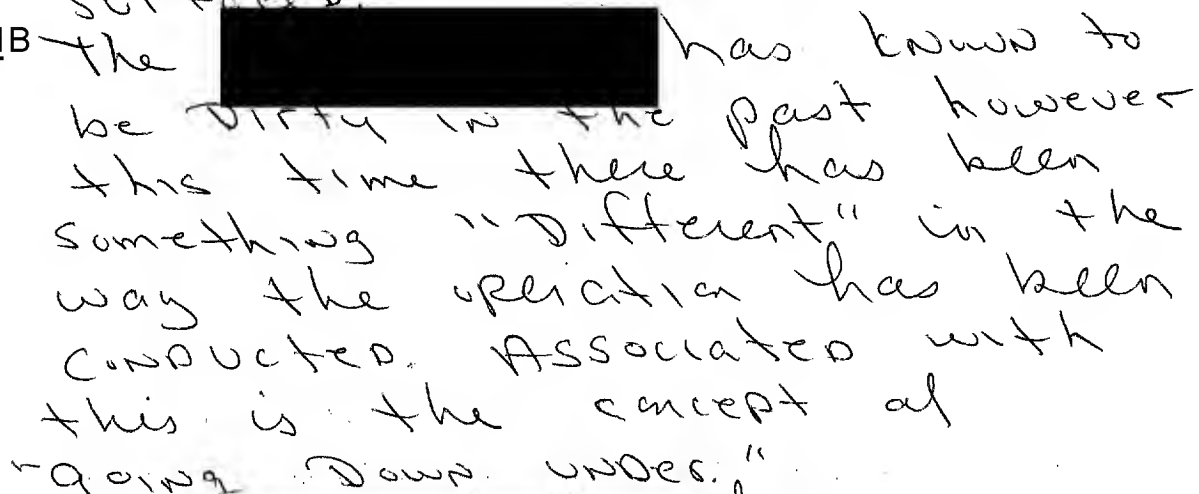 1B the has known to
be Dirty in the past however
this time there has been
something "Different" in the
way the operation has been
CONDUCTED. Associated with
this is the concept of
"going Down UNDER."